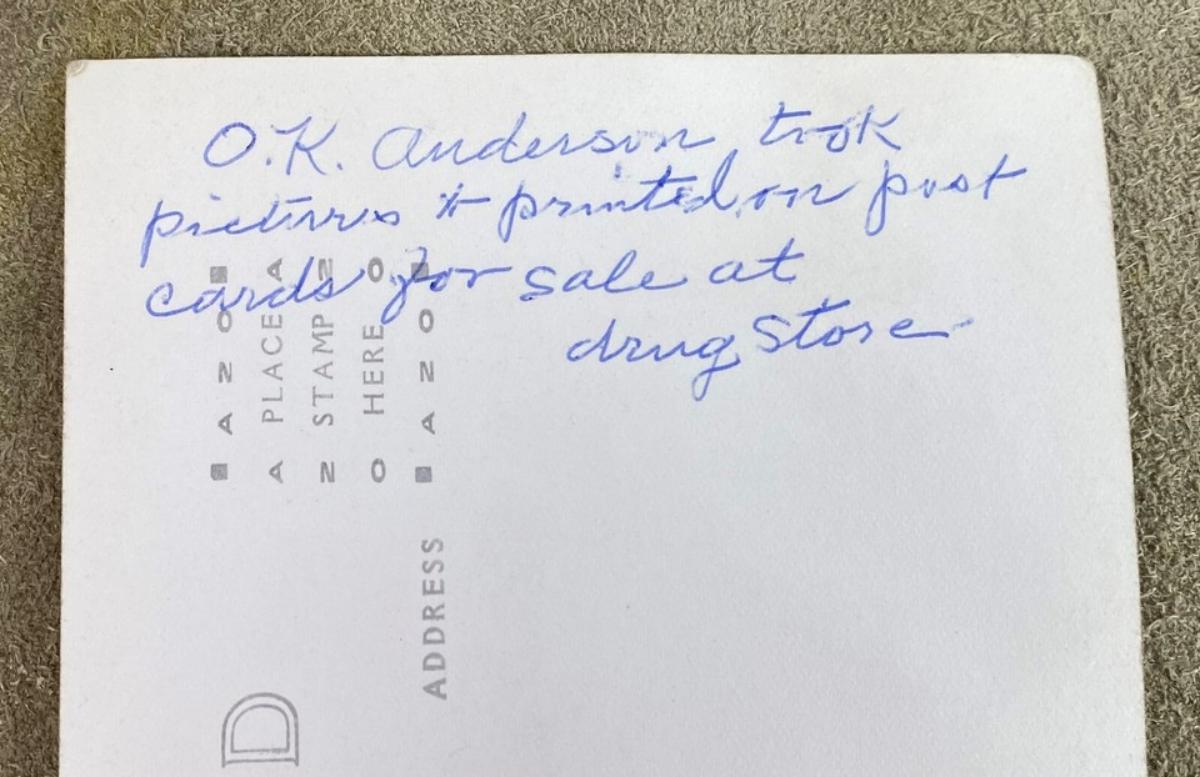 O.K. Anderson took
pictures & printed on post
cards for sale at
drug store
■ A Z O ■
A PLACE A
Z STAMP Z
O HERE O
■ A Z O ■
ADDRESS
D